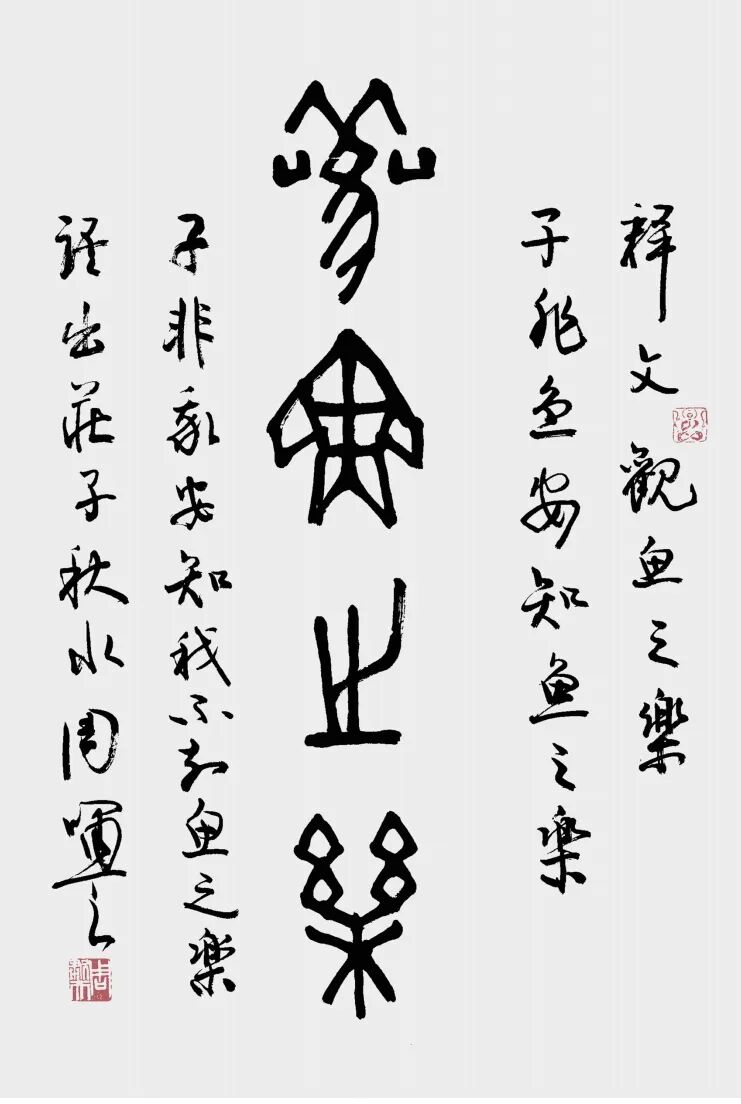 释文觀鱼之樂
子非鱼安知鱼之樂
觀魚之樂
子非我安知我不知鱼之樂
語出莊子秋水周